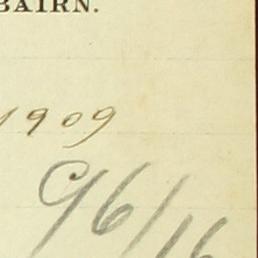 BAIRN.
1909
96/16